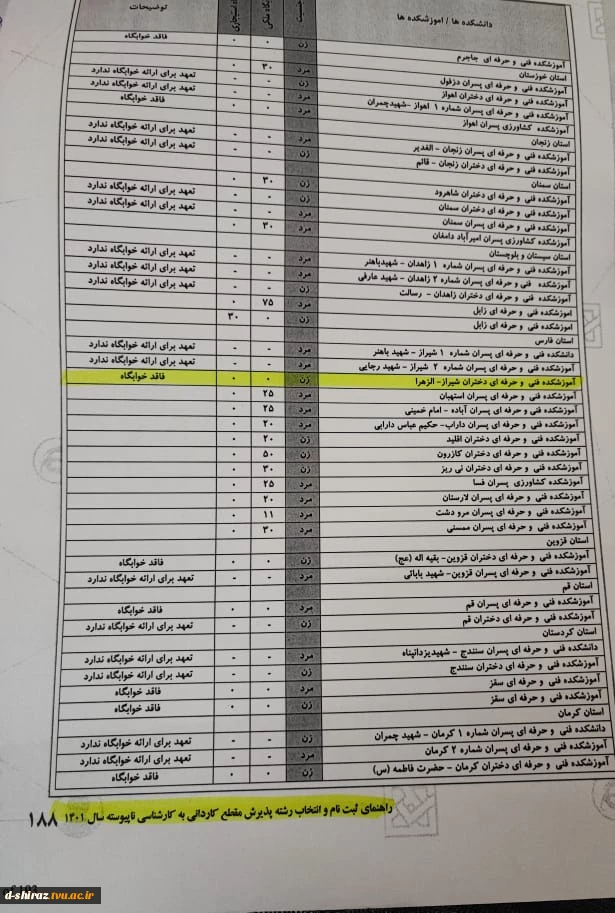 دانشکده ها / آموزشکده ها جنسیت ملکی استیجاری توضیحات
آموزشکده فنی و حرفه ای جاجرم زن ۰ ۰ فاقد خوابگاه
استان خوزستان
آموزشکده فنی و حرفه ای پسران دزفول مرد ۳۰ ۰
آموزشکده فنی و حرفه ای دختران اهواز زن - - تعهد برای ارائه خوابگاه ندارد
آموزشکده فنی و حرفه ای پسران شماره ۱ اهواز -شهیدچمران مرد - - تعهد برای ارائه خوابگاه ندارد
آموزشکده کشاورزی پسران اهواز مرد ۰ ۰ فاقد خوابگاه
استان زنجان
آموزشکده فنی و حرفه ای پسران زنجان - الغدیر مرد - - تعهد برای ارائه خوابگاه ندارد
آموزشکده فنی و حرفه ای دختران زنجان - قائم زن - - تعهد برای ارائه خوابگاه ندارد
استان سمنان
آموزشکده فنی و حرفه ای دختران شاهرود زن ۳۰ ۰
آموزشکده فنی و حرفه ای دختران سمنان زن - - تعهد برای ارائه خوابگاه ندارد
آموزشکده فنی و حرفه ای پسران سمنان مرد - - تعهد برای ارائه خوابگاه ندارد
آموزشکده کشاورزی پسران امیرآباد دامغان مرد ۳۰ ۰
استان سیستان و بلوچستان
آموزشکده فنی و حرفه ای پسران شماره ۱ زاهدان - شهیدباهنر مرد - - تعهد برای ارائه خوابگاه ندارد
آموزشکده فنی و حرفه ای پسران شماره ۲ زاهدان - شهید عارفی مرد - - تعهد برای ارائه خوابگاه ندارد
آموزشکده فنی و حرفه ای دختران زاهدان - رسالت زن - - تعهد برای ارائه خوابگاه ندارد
اموزشکده فنی و حرفه ای زابل مرد ۷۵ ۰
اموزشکده فنی و حرفه ای زابل زن ۰ ۳۰
استان فارس
دانشکده فنی و حرفه ای پسران شماره ۱ شیراز - شهید باهنر مرد - - تعهد برای ارائه خوابگاه ندارد
آموزشکده فنی و حرفه ای پسران شماره ۲ شیراز - شهید رجایی مرد - - تعهد برای ارائه خوابگاه ندارد
آموزشکده فنی و حرفه ای دختران شیراز- الزهرا زن ۰ ۰ فاقد خوابگاه
آموزشکده فنی و حرفه ای پسران استهبان مرد ۲۵ ۰
آموزشکده فنی و حرفه ای پسران آباده - امام خمینی مرد ۲۵ ۰
آموزشکده فنی و حرفه ای پسران داراب- حکیم عباس دارابی مرد ۲۰ ۰
آموزشکده فنی و حرفه ای دختران اقلید زن ۲۰ ۰
آموزشکده فنی و حرفه ای دختران کازرون زن ۵۰ ۰
آموزشکده فنی و حرفه ای دختران نی ریز زن ۳۰ ۰
آموزشکده کشاورزی پسران فسا مرد ۲۵ ۰
آموزشکده فنی و حرفه ای پسران لارستان مرد ۲۰ ۰
آموزشکده فنی و حرفه ای پسران مرو دشت مرد ۱۱ ۰
آموزشکده فنی و حرفه ای پسران ممسنی مرد ۳۰ ۰
استان قزوین
آموزشکده فنی و حرفه ای دختران قزوین- بقیه اله (عج) زن ۰ ۰ فاقد خوابگاه
آموزشکده فنی و حرفه ای پسران قزوین- شهید بابائی مرد - - تعهد برای ارائه خوابگاه ندارد
استان قم
آموزشکده فنی و حرفه ای پسران قم مرد ۰ ۰ فاقد خوابگاه
آموزشکده فنی و حرفه ای دختران قم زن - - تعهد برای ارائه خوابگاه ندارد
استان کردستان
دانشکده فنی و حرفه ای پسران سنندج - شهیدیزدانپناه مرد - - تعهد برای ارائه خوابگاه ندارد
آموزشکده فنی و حرفه ای دختران سنندج زن - - تعهد برای ارائه خوابگاه ندارد
آموزشکده فنی و حرفه ای سقز مرد ۰ ۰ فاقد خوابگاه
آموزشکده فنی و حرفه ای سقز زن ۰ ۰ فاقد خوابگاه
استان کرمان
دانشکده فنی و حرفه ای پسران شماره ۱ کرمان - شهید چمران زن - - تعهد برای ارائه خوابگاه ندارد
آموزشکده فنی و حرفه ای پسران شماره ۲ کرمان مرد - - تعهد برای ارائه خوابگاه ندارد
آموزشکده فنی و حرفه ای دختران کرمان - حضرت فاطمه (س) زن ۰ ۰ فاقد خوابگاه
راهنمای ثبت نام و انتخاب رشته پذیرش مقطع کاردانی به کارشناسی ناپیوسته سال ۱۴۰۱ ۱۸۸
d-shiraz.tvu.ac.ir